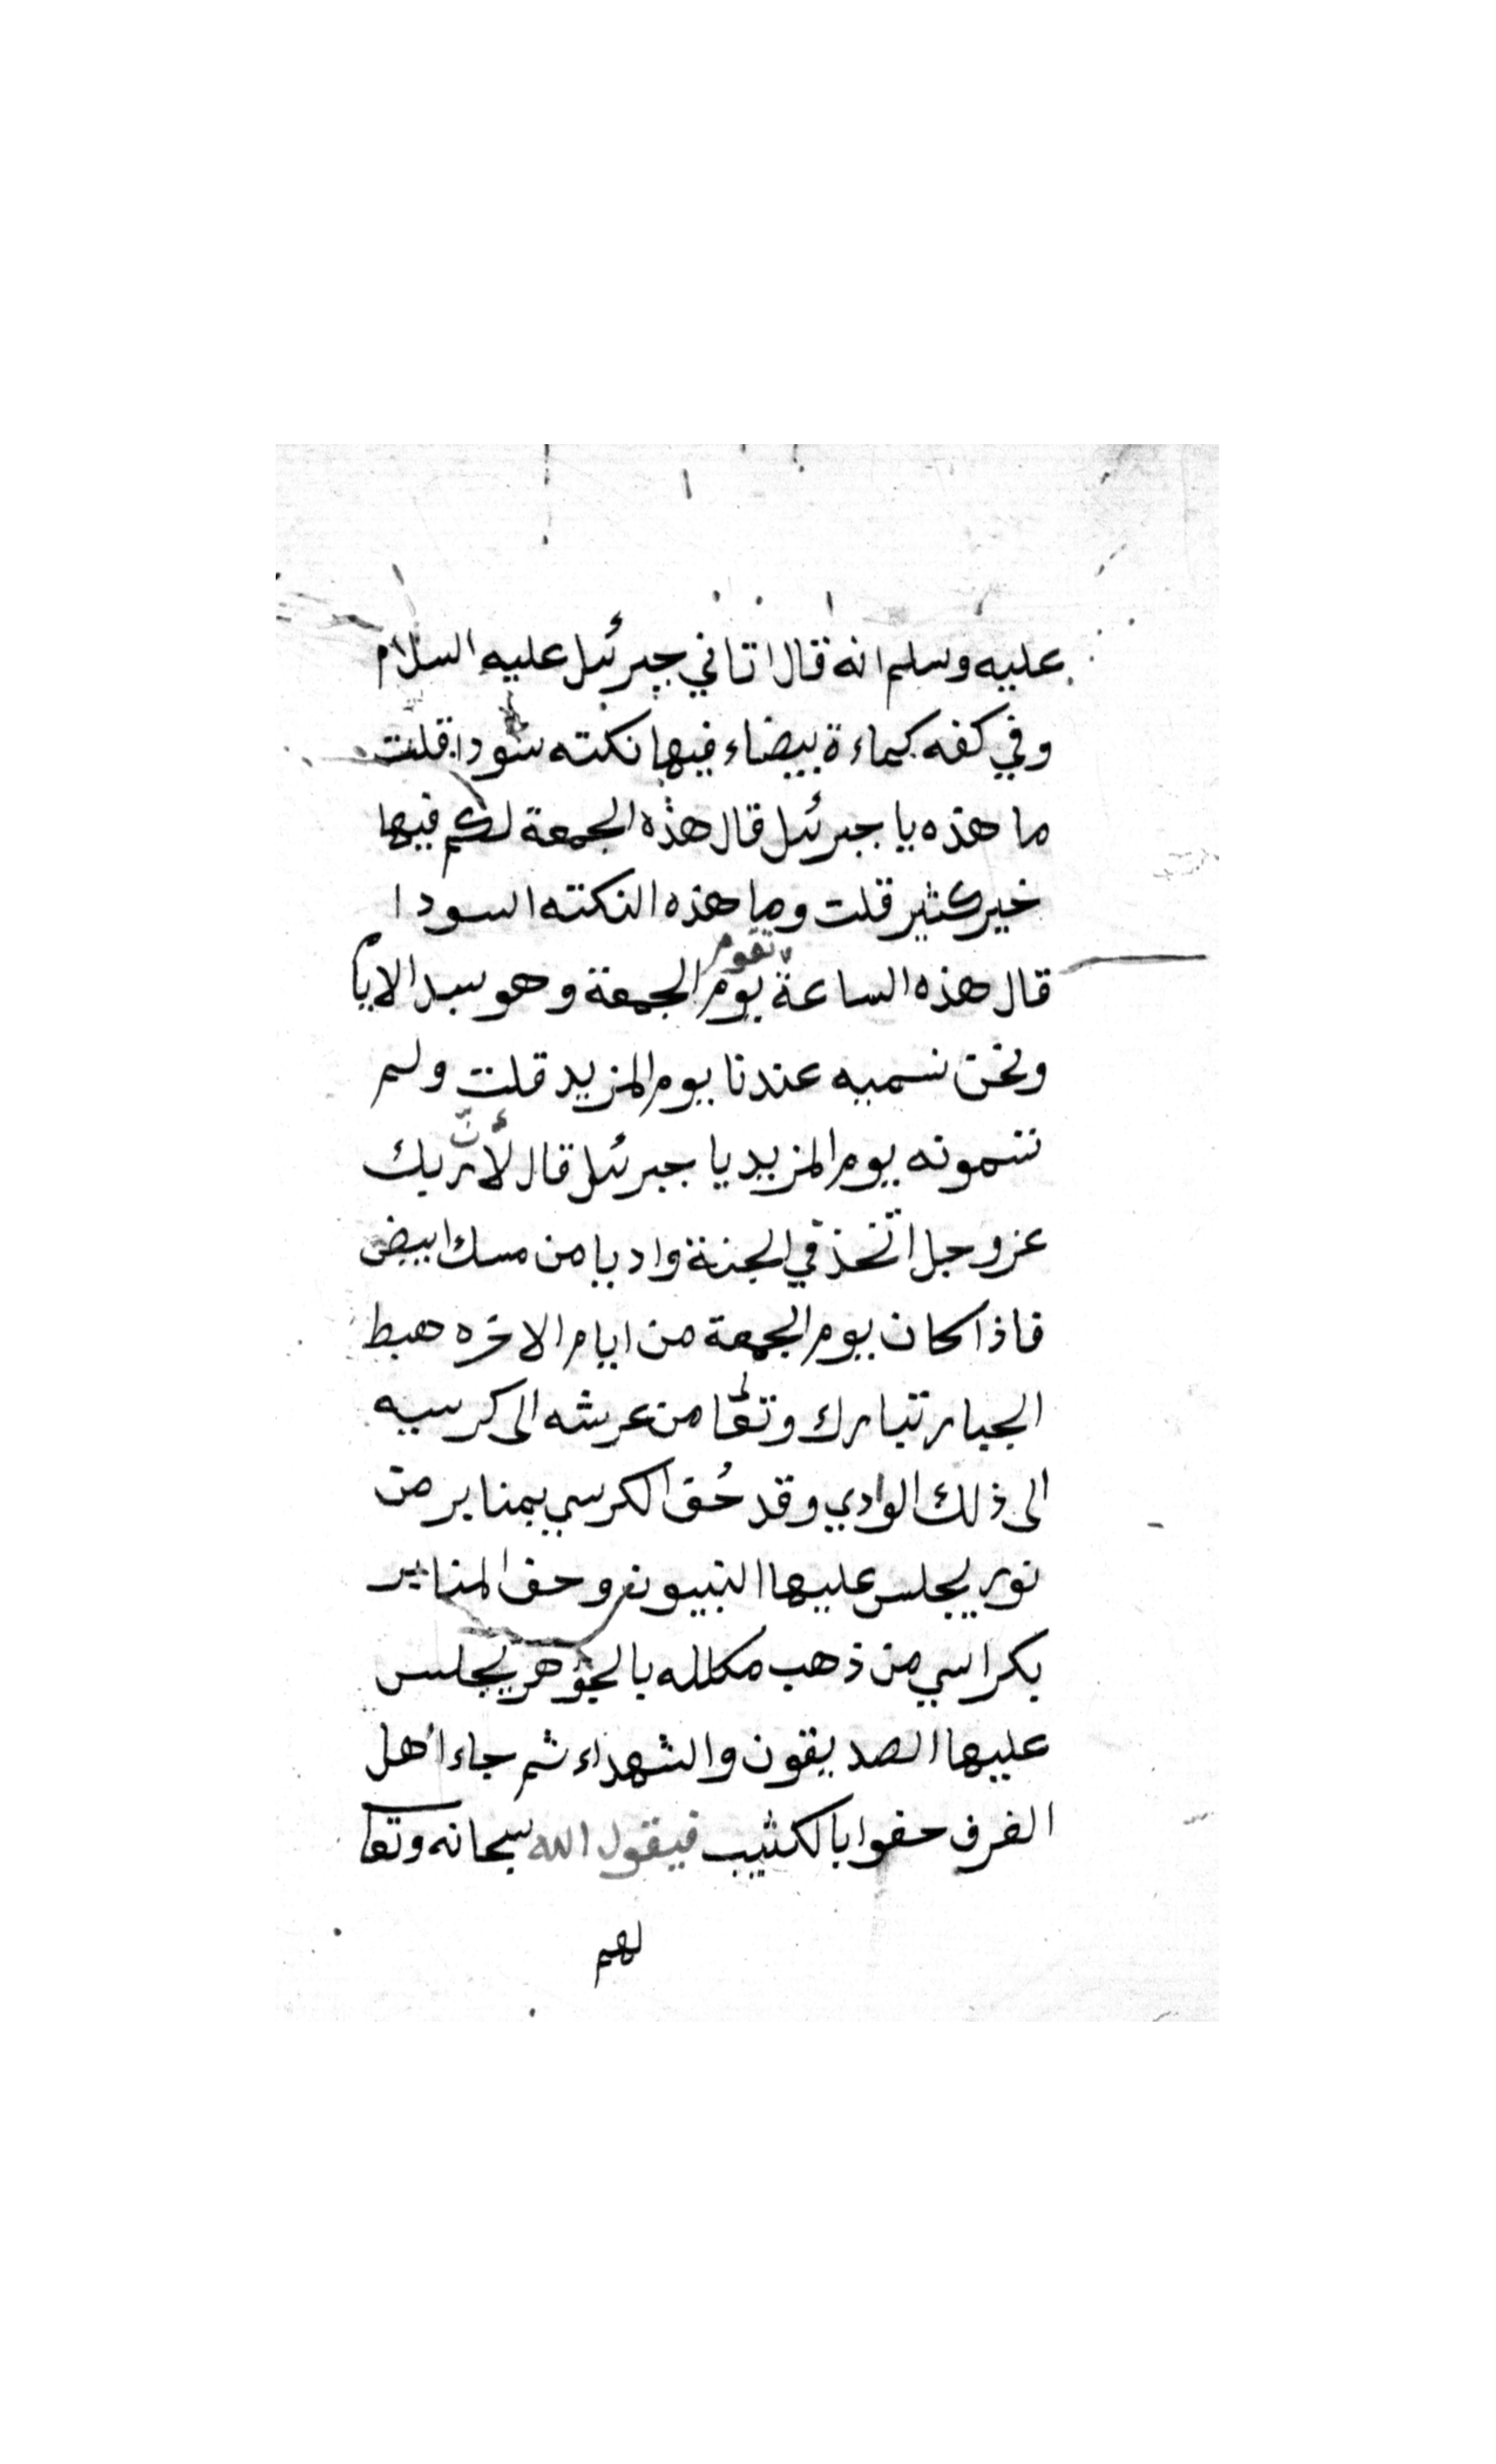 عليه وسلم انه قال اتاني جبرئيل عليه السلام
وفي كفه كماءة بيضاء فيها نكته سودا قلت
ما هذه يا جبرئيل قال هذه الجمعة لكم فيها
خير كثير قلت وما هذه النكته السودا
قال هذه الساعة تقوم يوم الجمعة وهو سيد الايام
ونحن نسميه عندنا يوم المزيد قلت ولم
تسمونه يوم المزيد يا جبرئيل قال لأنّ ربك
عز وجل اتخذ في الجنة واديا من مسك ابيض
فاذا كان يوم الجمعة من ايام الاخره هبط
الجبار تبارك وتعالى من عرشه الى كرسيه
الى ذلك الوادي وقد حُف الكرسي بمنابر من
نور يجلس عليها النبيون وحف المنابر
بكراسي من ذهب مكلله بالجوهر يجلس
عليها الصديقون والشهداء ثم جاء اهل
الغرف حفوا بالكثيب فيقول الله سبحانه وتعا
لهم